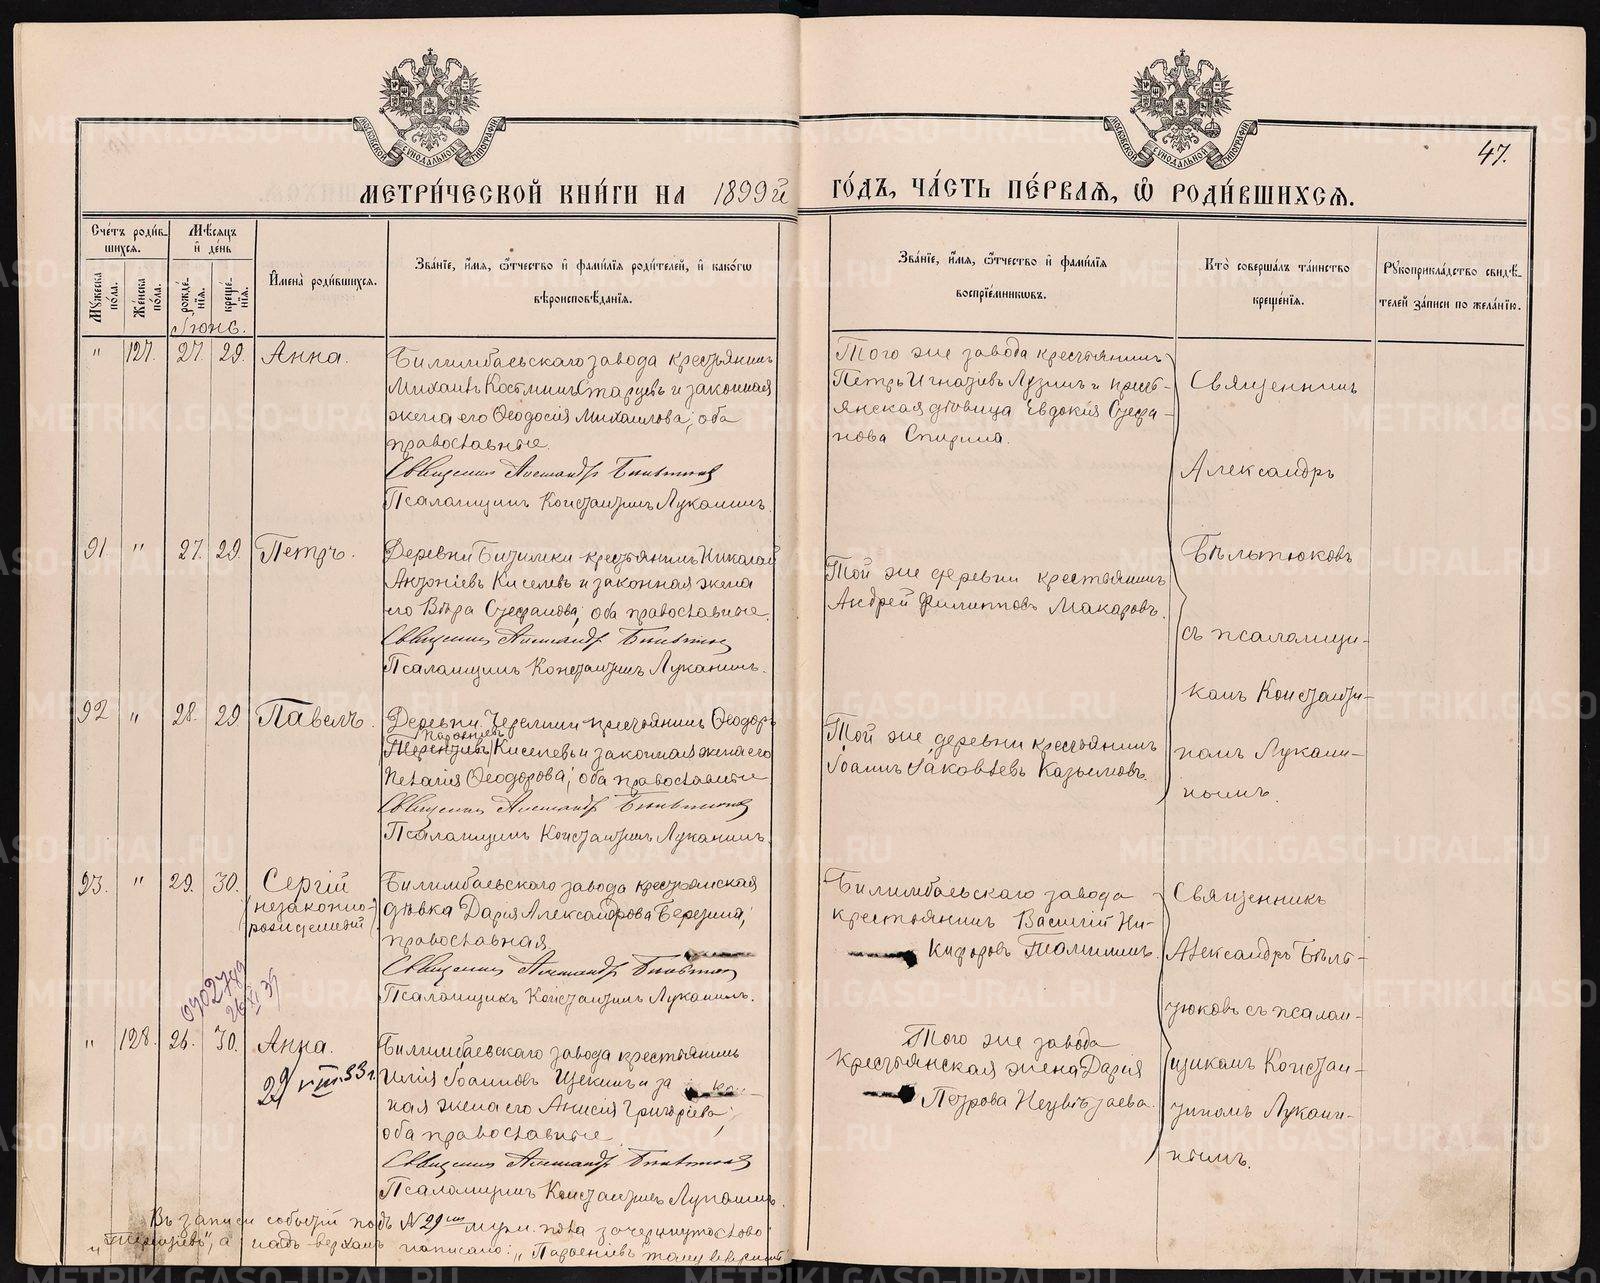 47.
МЕТРИ́ЧЕСКОЙ КНИ́ГИ НА 1899й ГО́ДЪ, ЧА́СТЬ ПЕ́РВАѦ, Ѡ҆ РОДИ́ВШИХСѦ.
Сче́тъ роди́в-
шихсѧ.
Мꙋ́жеска по́ла.
Же́нска по́ла.
Мѣ́сѧцъ
и҆ де́нь
рожде́нїѧ.
креще́нїѧ.
И҆мена̀ роди́вшихсѧ.
Зва́нїе, и҆́мѧ, ѻ҆́тчество и҆ фами́лїѧ роди́телей, и҆ како́гѡ
вѣроисповѣ́данїѧ.
Зва́нїе, и҆́мѧ, ѻ҆́тчество и҆ фами́лїѧ
воспрїе́мникѡвъ.
Кто̀ соверша́лъ та́инство
креще́нїѧ.
Рꙋкоприкла́дство свидѣ́-
телей за́писи по жела́нїю.
Іюнь.
" 127. 27. 29. Анна.
Билимбаевскаго завода крестьянинъ
Михаилъ Костминъ Старцевъ и законная
жена его Ѳеодосія Михаилова; оба
православные.
Священникъ Александръ Бѣльтюковъ
Псаломщикъ Константинъ Луканинъ.
Того же завода крестьянинъ
Петръ Игнатіевъ Лузинъ и кресть-
янская дѣвица Евдокія Стефа-
нова Спирина.
Священникъ
Александръ
Бѣльтюковъ
съ псаломщи-
комъ Константи-
номъ Лукани-
нымъ.
91. " 27. 29. Петръ.
Деревни Битимки крестьянинъ Николай
Антоніевъ Киселевъ и законная жена
его Вѣра Стефанова; оба православные.
Священникъ Александръ Бѣльтюковъ
Псаломщикъ Константинъ Луканинъ.
Той же деревни крестьянинъ
Андрей Филипповъ Макаровъ.
92 " 28. 29 Павелъ.
Деревни Черемши крестьянинъ Ѳеодоръ
Парѳеніевъ
Терентіевъ Киселевъ и законная жена его
Пелагія Ѳеодорова; оба православные
Священникъ Александръ Бѣльтюковъ
Псаломщикъ Константинъ Луканинъ.
Той же деревни крестьянинъ
Іоаннъ Іаковлевъ Казымовъ.
93. " 29. 30. Сергій
(незаконно-
рожденный)
Билимбаевскаго завода крестьянская
дѣвка Дарія Александрова Березина;
православная.
Священникъ Александръ Бѣльтюковъ
Псаломщикъ Константинъ Луканинъ.
Билимбаевскаго завода
крестьянинъ Василій Ни-
кифоровъ Томилинъ.
Священникъ
Александръ Бѣль-
тюковъ съ псалом-
щикомъ Констан-
тиномъ Лукани-
нымъ.
" 128. 26. 30. Анна.
29 VIII 33 г.
Билимбаевскаго завода крестьянинъ
Илія Іоанновъ Щекинъ и за
ная жена его Анисія Григорьева;
оба православные.
Священникъ Александръ Бѣльтюковъ
Псаломщикъ Константинъ Луканинъ.
Того же завода
крестьянская жена Дарія
Петрова Нецвѣтаева.
Въ записи событій подъ № 29 муж. пола зачеркнуто слово
"Терентіевъ", а надъ верхомъ написано: "Парѳеніевъ" тому вѣрить